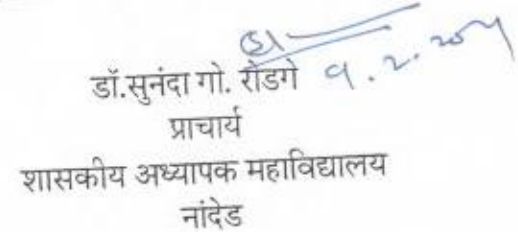 डॉ.सुनंदा गो. रोडगे
प्राचार्य
शासकीय अध्यापक महाविद्यालय
नांदेड